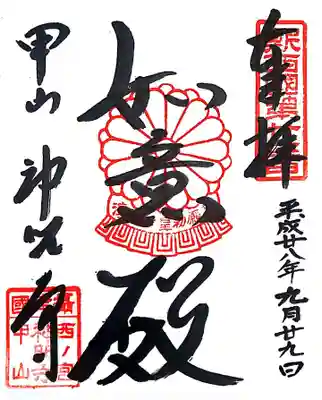 奉拝
平成廿八年九月廿九日
如意殿
甲山 神呪寺
攝西ノ宮
國甲山